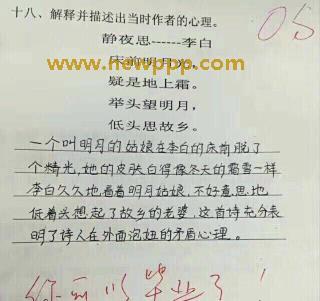 十八、解释并描述出当时作者的心理。
05
静夜思------李白
www.newppp.com
床前明月光，
疑是地上霜。
举头望明月，
低头思故乡。
一个叫明月的姑娘在李白的床前脱了
个精光，她的皮肤白得像冬天的霜雪一样
李白久久地看着明月姑娘，不好意思地
低着头想起了故乡的老婆，这首诗充分表
明了诗人在外面泡妞的矛盾心理。
你可以毕业了！